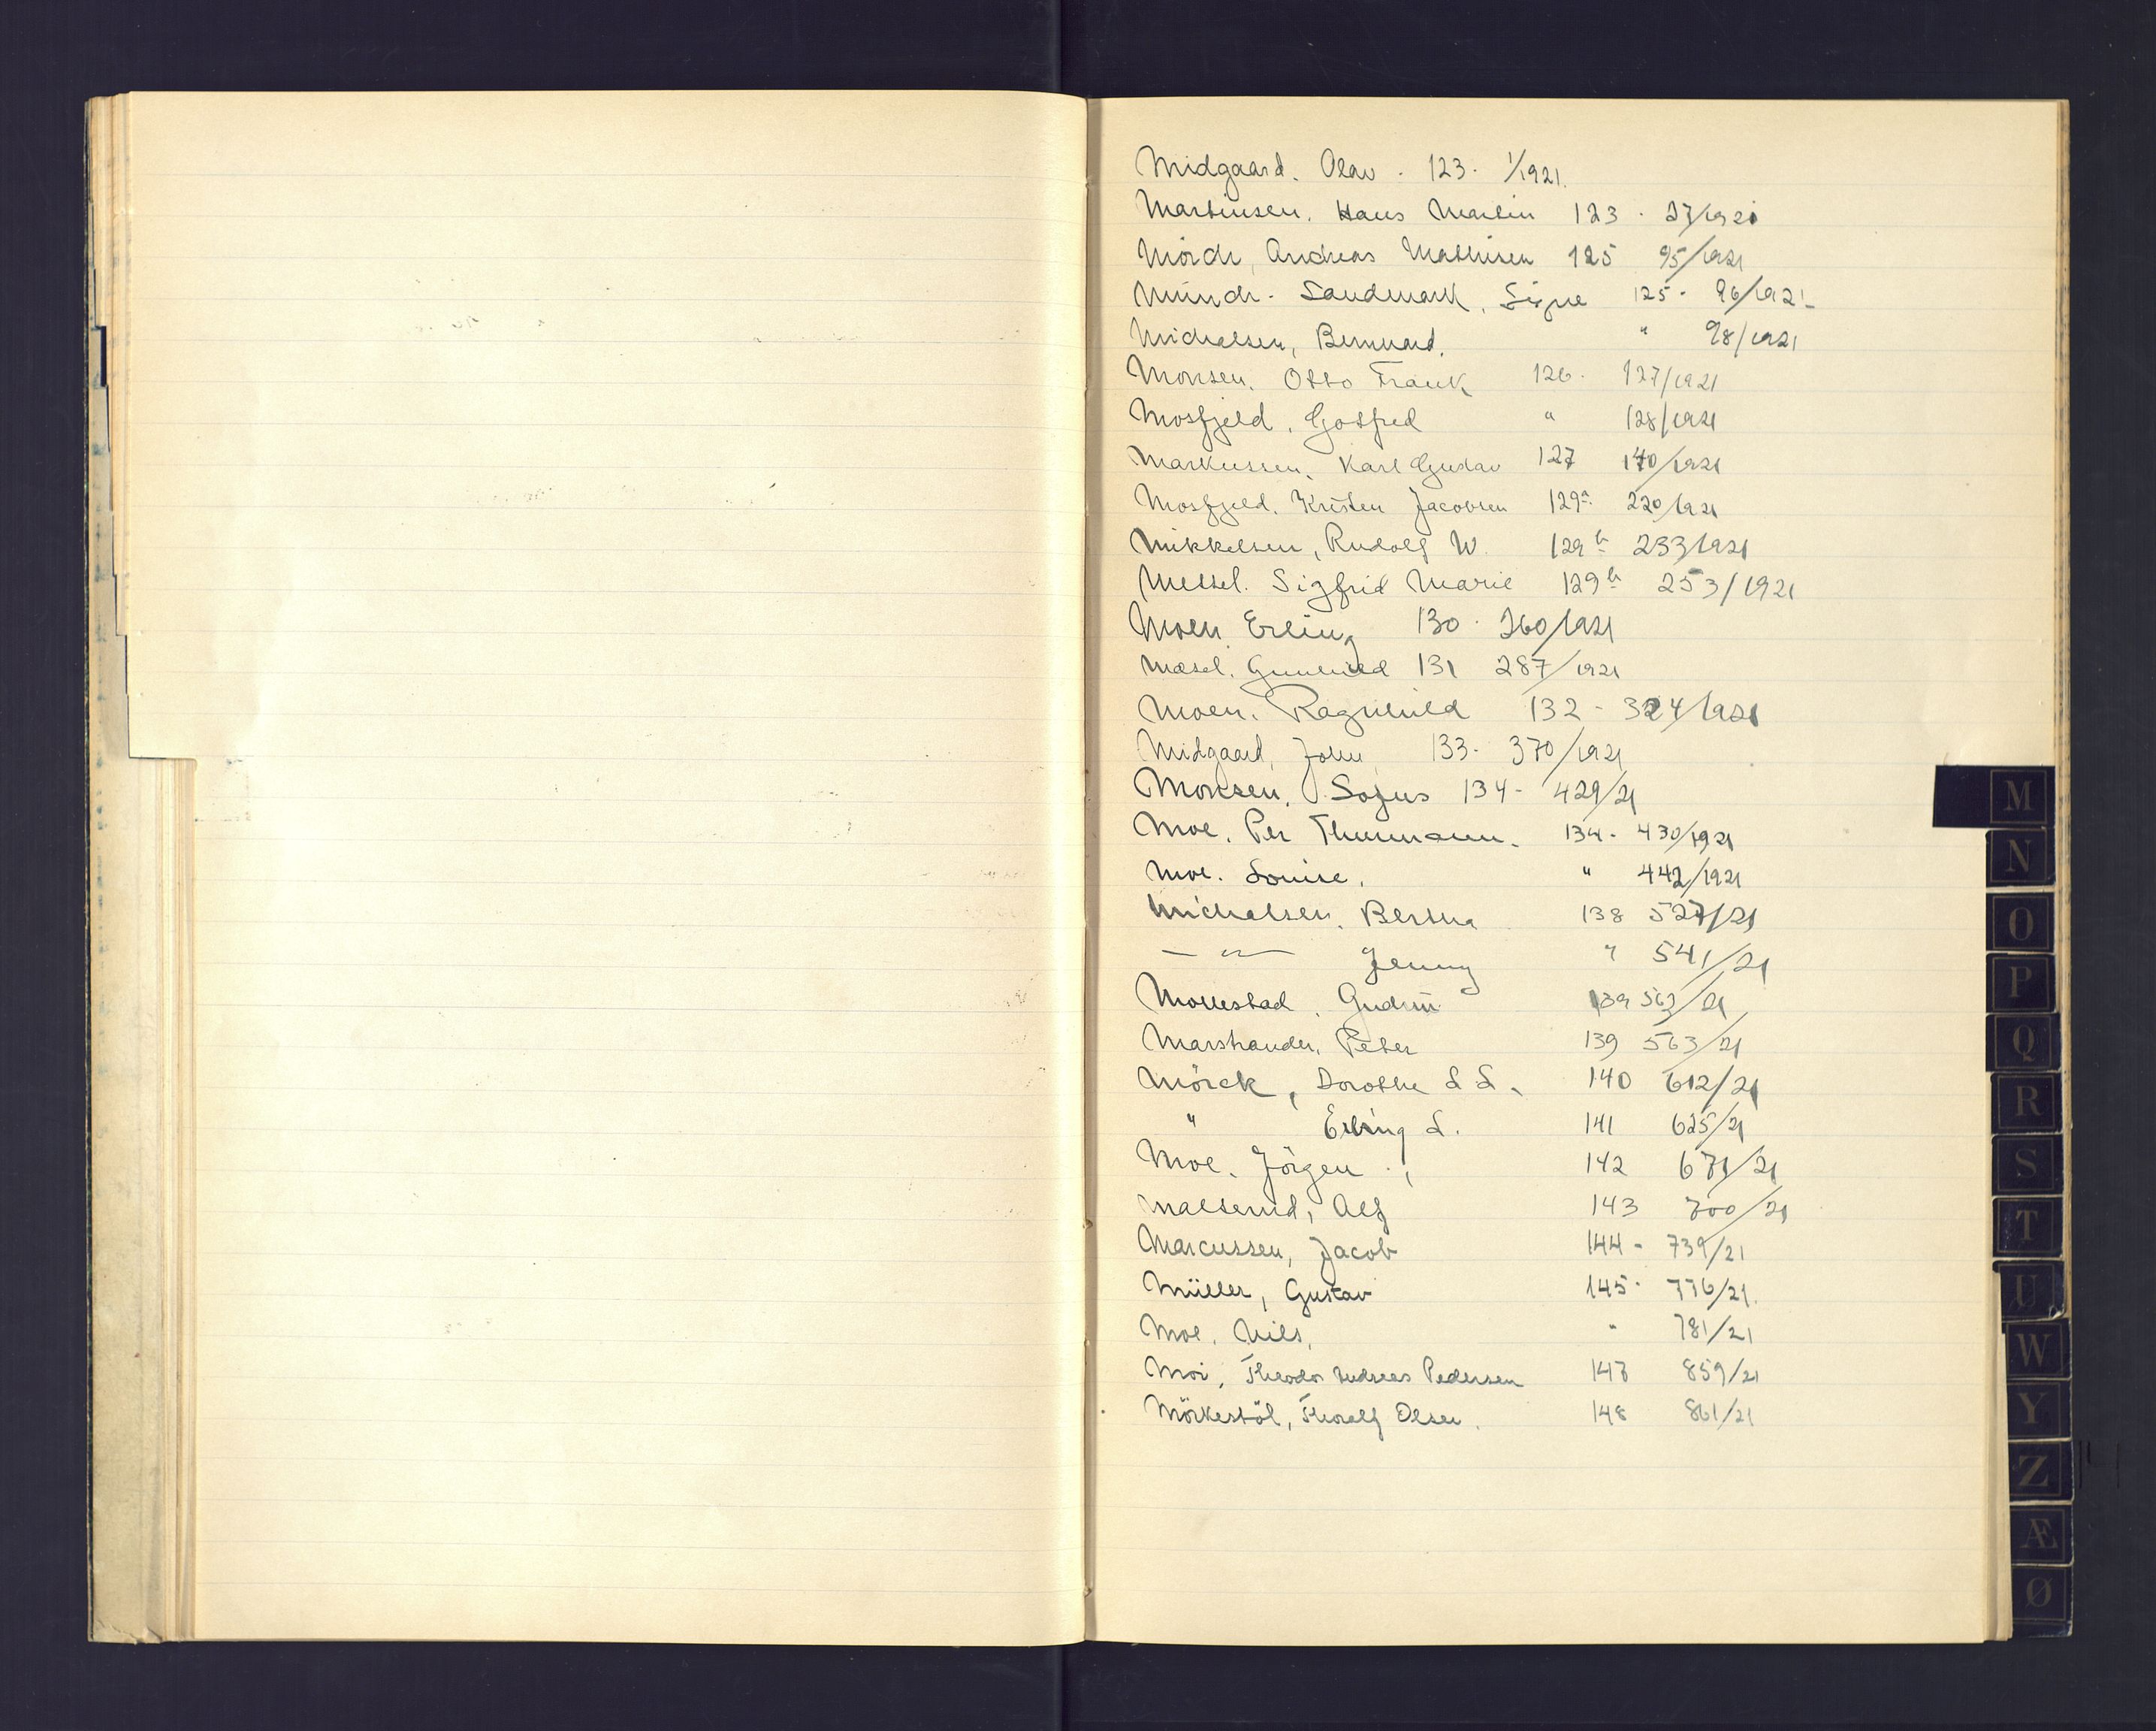 Midgaard. Olav. 123. 1/1921.
Martinsen. Hans Martin 123. 27/1921
Mörch, Andreas Mathisen 125 95/1921
Münch-Sandmark, Signe 125. 96/1921-
Michalsen, Bernhard. " 98/1921
Monsen. Otto Frank 126. 127/1921
Mosfjeld, Gotfred " 128/1921
Markussen, Karl Gustav 127 140/1921
Mosfjeld. Kristen Jacobsen 129a 220/1921
Mikkelsen, Rudolf W. 129b 233/1921
Messel. Sigfrid Marie 129b 253/1921
Moen Erling 130. 260/1921
Mæsel. Gunhild 131 287/1921
Moen. Ragnhild 132 - 324/1921
Midgaard, John 133. 370/1921
Monsen. Sofus 134- 429/21
Moe. Per Thurmann. 134. 430/1921
Moe. Louise. " 442/1921
Michalsen. Bertha 138 527/21
— " — Jenny " 541/21
Mollestad. Gudrun 139 563/21
Marstrander. Peter 139 563/21
Mörck, Dorothe L L. 140 612/21
" Erling L. 141 625/21
Moe. Jörgen 142 671/21
Malserud, Alf 143 700/21
Marcussen, Jacob 144- 739/21
Müller, Gustav 145. 776/21.
Moe. Nils. " 781/21
Moi, Theodor Andreas Pedersen 147 859/21
Mörkestöl, Thoralf Olsen. 148 861/21
M
N
O
P
Q
R
S
T
U
W
Y
Z
Æ
Ø